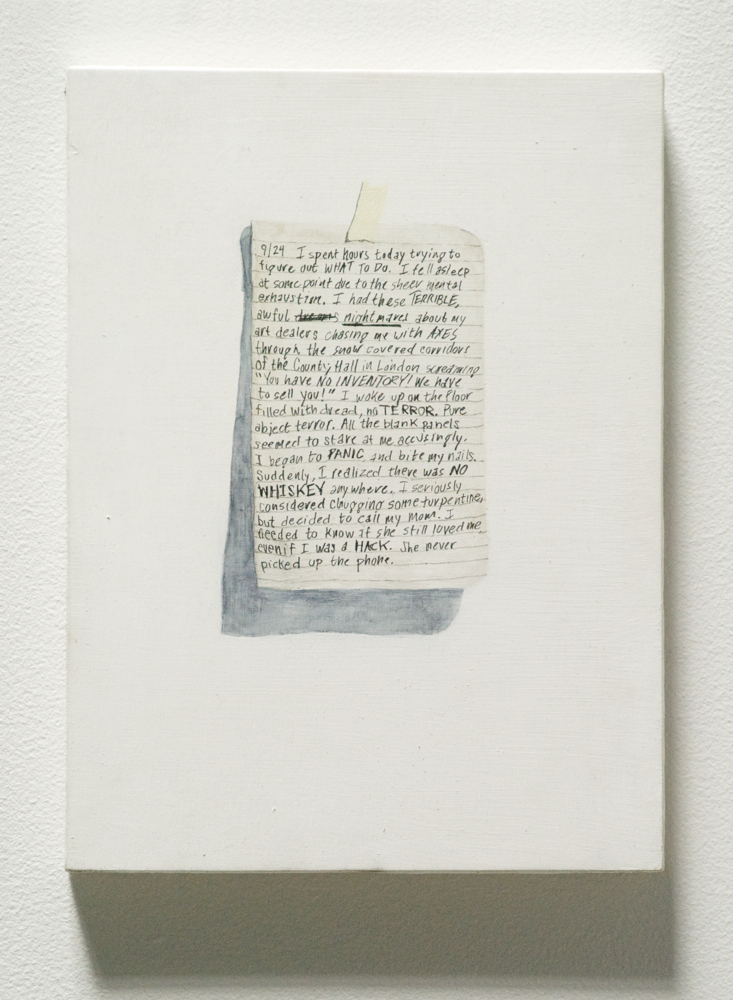 9/24 I spent hours today trying to
figure out WHAT TO DO. I fell asleep
at some point due to the sheer mental
exhaustion. I had these TERRIBLE,
awful dreams nightmares about my
art dealers chasing me with AXES
through the snow covered corridors
of the County Hall in London screaming
"You have NO INVENTORY! We have
to sell you!" I woke up on the floor
filled with dread, no TERROR. Pure
abject terror. All the blank panels
seemed to stare at me accusingly.
I began to PANIC and bite my nails.
Suddenly, I realized there was NO
WHISKEY anywhere. I seriously
considered chugging some turpentine,
but decided to call my Mom. I
needed to know if she still loved me
even if I was a HACK. She never
picked up the phone.